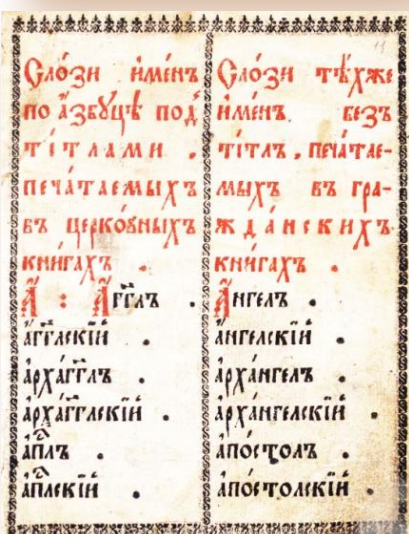 Слóзи и҆мéнъ
по а҆збꙋцѣ под̾
тíтлами .
печáтаемыхъ
въ церкóвныхъ
кнúгахъ .
А҆҃ : А҆́гг҃лъ .
а҆́гг҃лскїй .
а҆рхáгг҃лъ .
а҆рхáгг҃лскїй .
а҆пⷭ҇лъ .
а҆пⷭ҇лскїй .
Слóзи тѣ́хже
и҆мéнъ без̾
тíтлъ . печáтае-
мыхъ въ гра-
ждáнскихъ
кнúгахъ .
А҆́нгелъ .
а҆́нгелскїй .
а҆рхáнгелъ .
а҆рхáнгелскїй .
а҆пóстолъ .
а҆пóстолскїй .